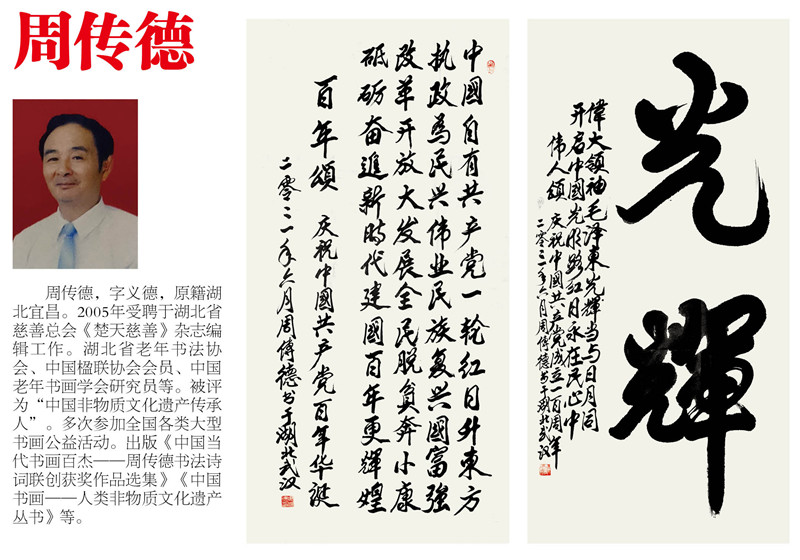 周传德
周传德，字义德，原籍湖
北宜昌。2005年受聘于湖北省
慈善总会《楚天慈善》杂志编
辑工作。湖北省老年书法协
会、中国楹联协会会员、中国
老年书画学会研究员等。被评
为“中国非物质文化遗产传承
人”。多次参加全国各类大型
书画公益活动。出版《中国当
代书画百杰——周传德书法诗
词联创获奖作品选集》《中国
书画——人类非物质文化遗产
丛书》等。
中國自有共产党一轮红日升東方
执政為民兴伟业民族复兴國富强
改革开放大发展全民脱貧奔小康
砥砺奋進新時代建國百年更輝煌
百年頌 庆祝中國共产党百年华诞
二零二一年六月周傳德书于湖北武汉
光輝
偉大领袖毛泽東光輝当与日月同
开启中國光明路红日永在民心中
伟人颂 庆祝中國共产党成立一百周年
二零二一年六月周傳德书于湖北武汉